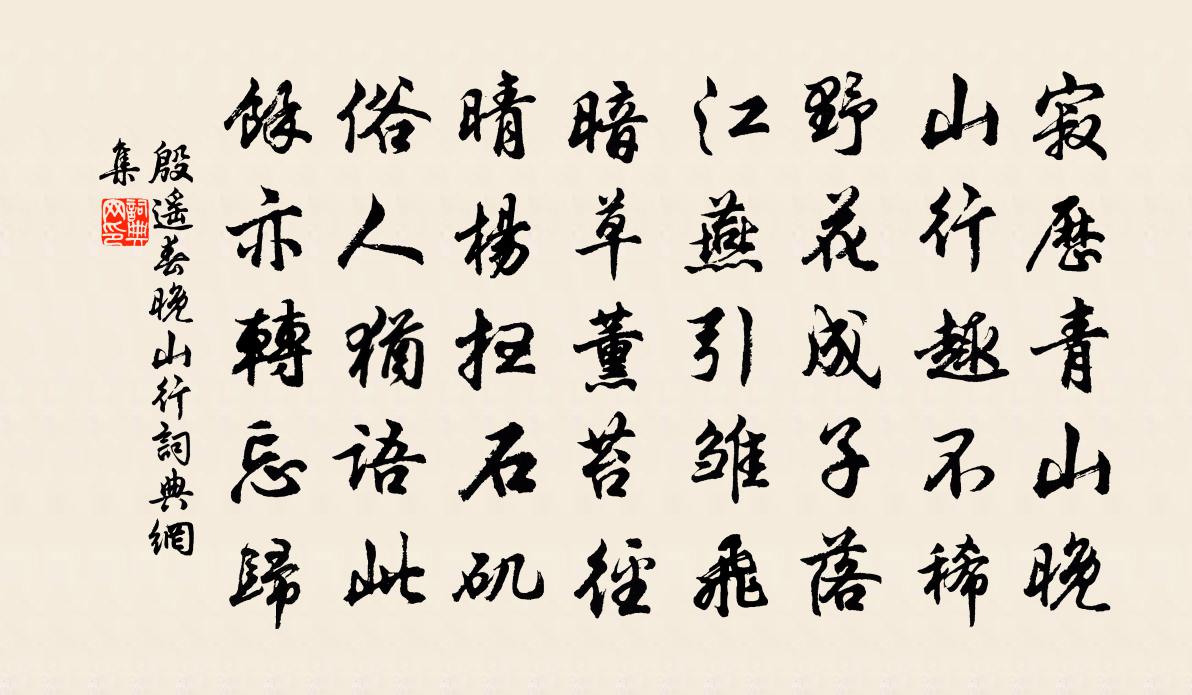 寂歷青山晚
山行趣不稀
野花成子落
江燕引雛飛
暗草薰苔徑
晴楊掃石矶
俗人猶語此
餘亦轉忘歸
殷遥春晚山行詞典網
集
詞典網印